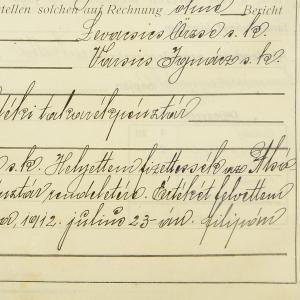 stellen solchen auf Rechnung ohne Bericht
Levacsics Örzse s. k.
Varsics Ignácz s. k.
déki takarékpénztár
s. k. Helyettem fizettessék az Alsó
ztár rendeletére. Értékét felvettem
1912. július 23-án. Filipán